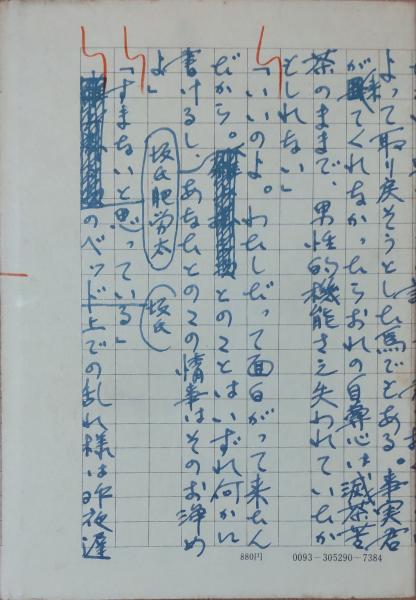 よって取り戻そうとした為でもある。事実君
が来てくれなかったらおれの自尊心は滅茶苦
茶のままで、男性的機能さえ失われていたか
もしれない」
「いいのよ。わたしだって面白がって来たん
だから。坂氏肥労太とのことはいずれ何かに
書けるし、あなたとのこの情事はそのお浄め
よ」
「すまないと思っている」
坂氏のベッド上での乱れ様は昨夜遅
880円 0093-305290-7384